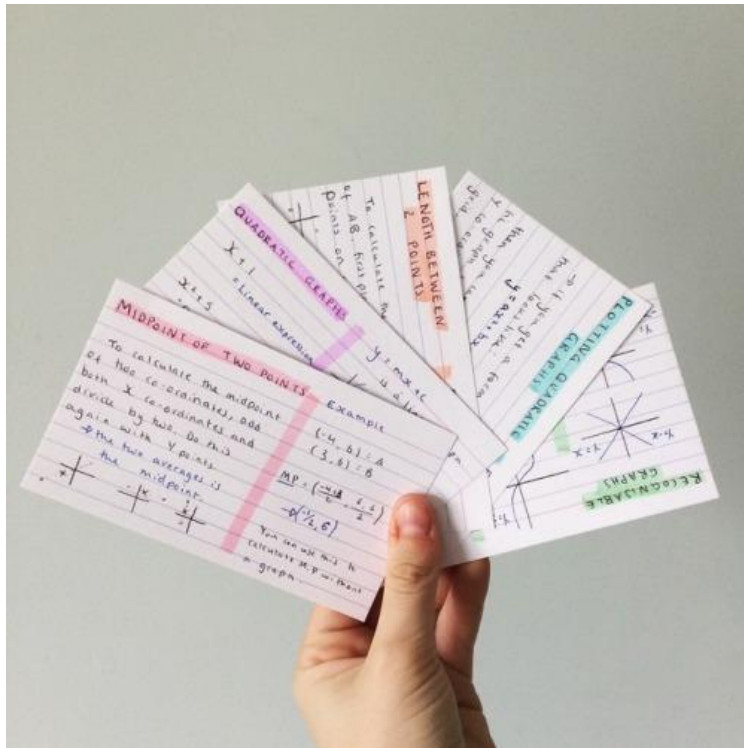 MIDPOINT OF TWO POINTS
To calculate the midpoint
of two co-ordinates, add
both x co-ordinates and
divide by two. Do this
again with Y points.
→ the two averages is
the midpoint.
Example
(-4, 6) = A
(3, 6) = B
MP =
→(-1/2, 6)
You can use this to
calculate M.P without
a graph.
QUADRATIC GRAPHS
x + 1
= Linear expression
x + 5
y = mx + c
is a
LENGTH BETWEEN
2 POINTS
To calculate the
of AB, first
points on
PLOTTING QUADRATIC
GRAPHS
→ if you get a
y = ax² + bx
then
graph
grid
RECOGNISABLE
GRAPHS
y=x
y=-x